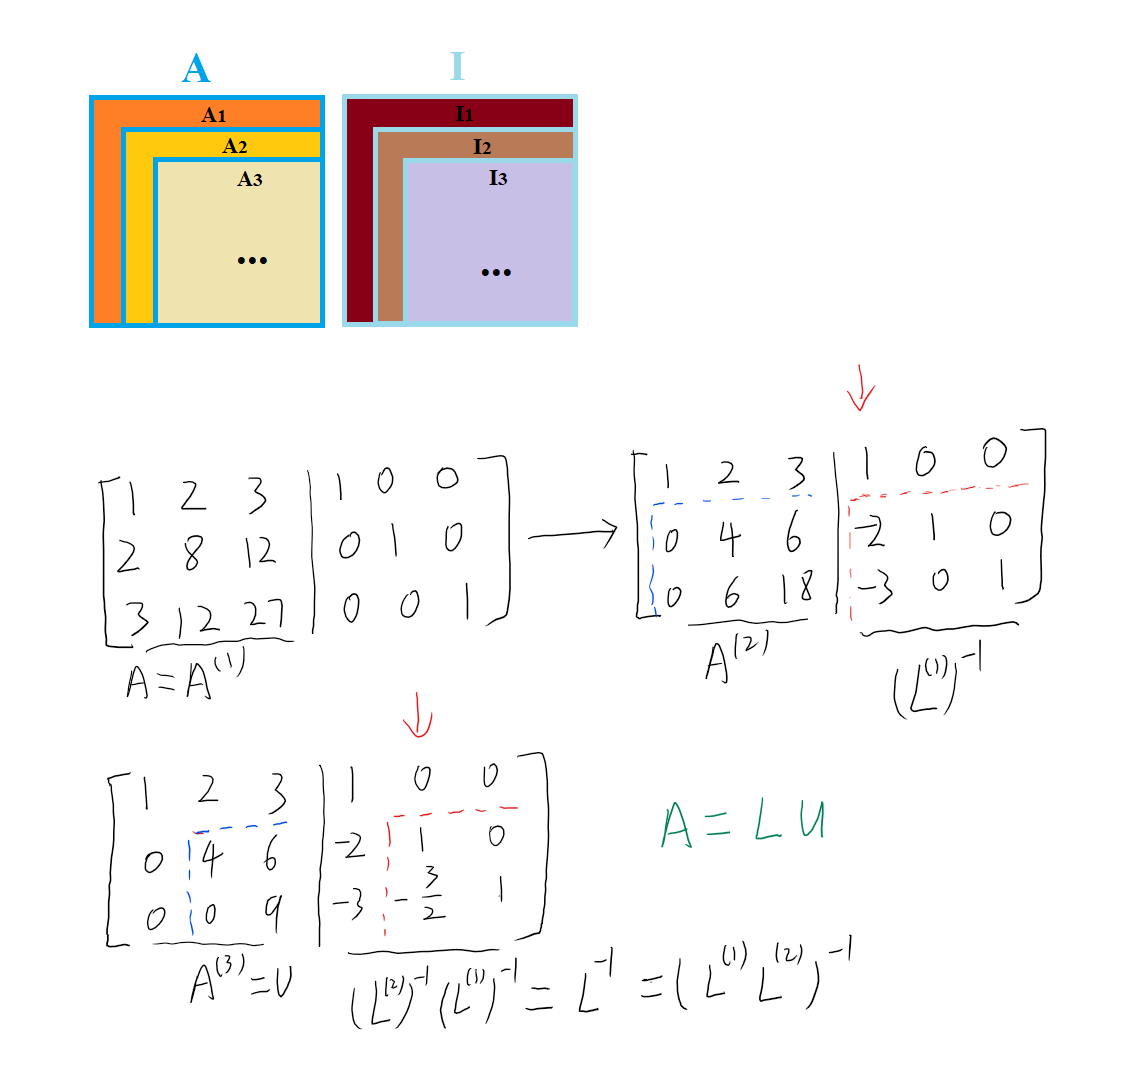 A I
A1 I1
A2 I2
A3 I3
... ...
[ 1 2 3 | 1 0 0 ]
[ 2 8 12 | 0 1 0 ]
[ 3 12 27 | 0 0 1 ]
A = A^(1)
→
↓
[ 1 2 3 | 1 0 0 ]
[ 0 4 6 | -2 1 0 ]
[ 0 6 18 | -3 0 1 ]
A^(2) (L^(1))^-1
↓
[ 1 2 3 | 1 0 0 ]
[ 0 4 6 | -2 1 0 ]
[ 0 0 9 | -3 -3/2 1 ]
A^(3) = U (L^(2))^-1 (L^(1))^-1 = L^-1 = (L^(1) L^(2))^-1
A = L U